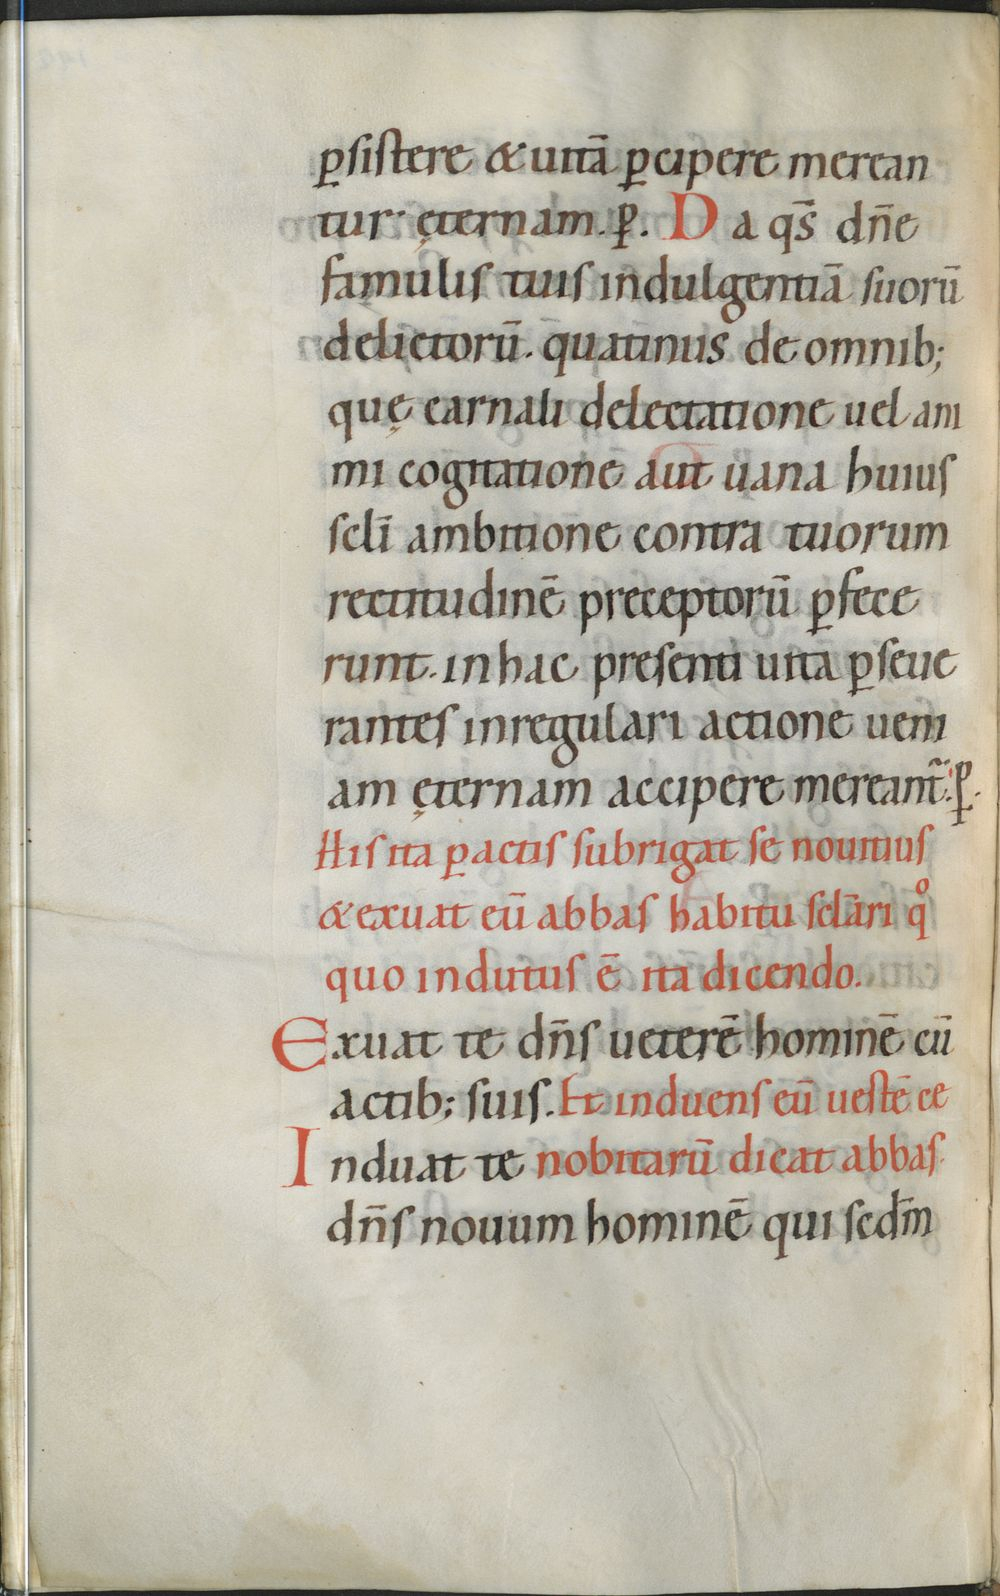 ꝑsistere & uitā ꝑcipere merean
tur ęternam. ꝑ. Da qs̄ dn̄e
famulis tuis indulgentiā suorū
delictorū. q̄uatinus de omnib;
quę carnali delectatione uel ani
mi cogitatione aut uana huius
scl̄i ambitione contra tuorum
rectitudinē preceptorū ꝑfece
runt. in hac presenti uita ꝑseue
rantes in regulari actione ueni
am ęternam accipere mereant̄. ꝑ.
His ita ꝑactis subrigat se nouitius
& exuat eū abbas habitu scl̄ari qͦ
quo indutus ē ita dicendo.
Exuat te dn̄s ueterē hominē cū
actib; suis. Et induens eū uestē ce
Induat te nobitarū dicat abbas.
dn̄s nouum hominē qui scdm̄